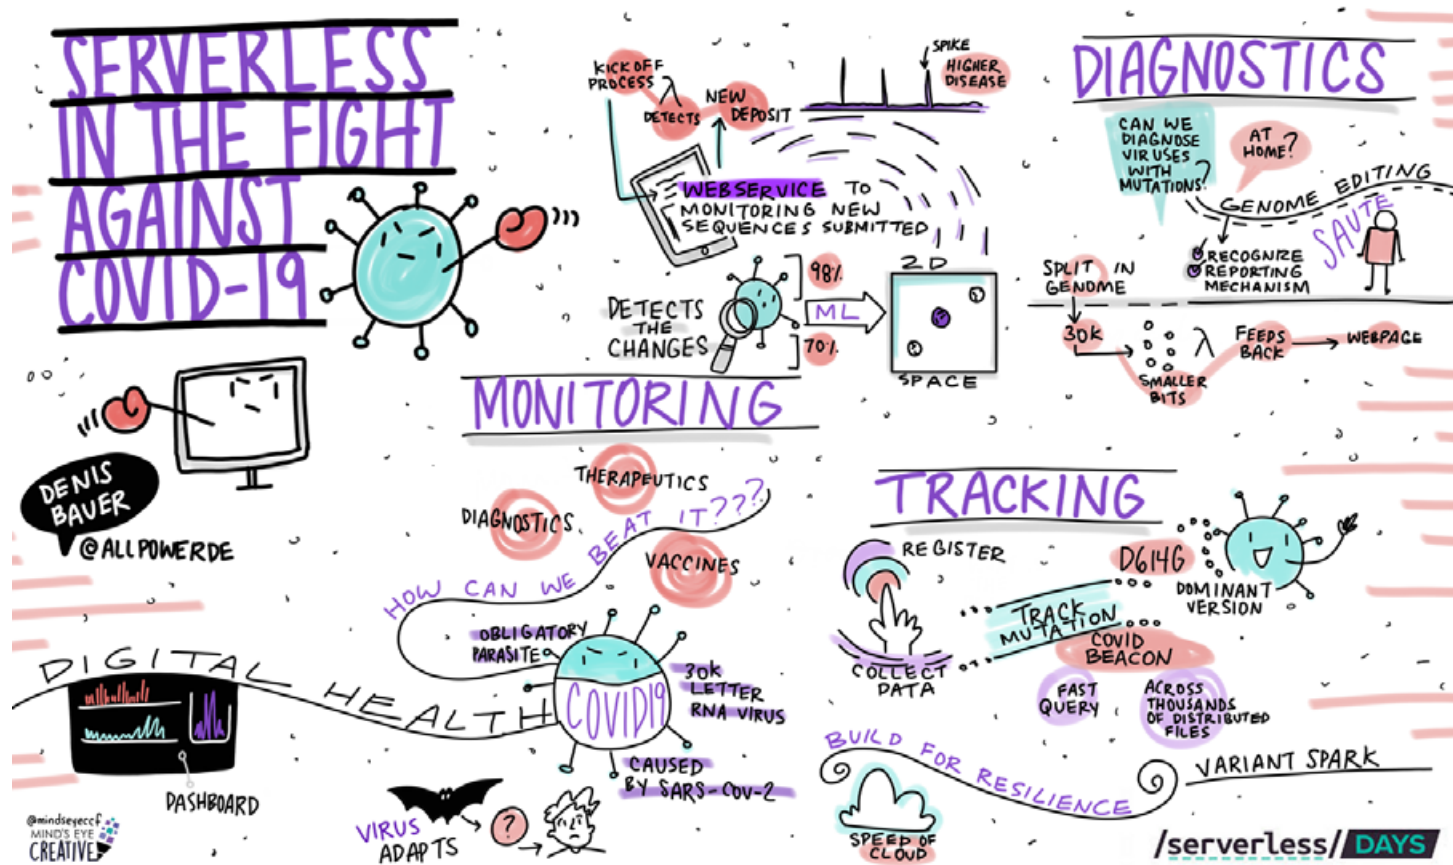 SERVERLESS
IN THE FIGHT
AGAINST
COVID-19
DENIS
BAUER
@ALLPOWERDE
KICK OFF
PROCESS
λ
DETECTS
NEW
DEPOSIT
SPIKE
HIGHER
DISEASE
WEBSERVICE TO
MONITORING NEW
SEQUENCES SUBMITTED
DETECTS
THE
CHANGES
98%
70%
ML
2D
SPACE
MONITORING
THERAPEUTICS
DIAGNOSTICS
VACCINES
HOW CAN WE BEAT IT???
OBLIGATORY
PARASITE
COVID19
30K
LETTER
RNA VIRUS
CAUSED
BY SARS-COV-2
DIGITAL HEALTH
DASHBOARD
VIRUS
ADAPTS
?
DIAGNOSTICS
CAN WE
DIAGNOSE
VIRUSES
WITH
MUTATIONS?
AT
HOME?
GENOME EDITING
RECOGNIZE
REPORTING
MECHANISM
SAUTE
SPLIT IN
GENOME
30K
SMALLER
BITS
λ
FEEDS
BACK
WEBPAGE
TRACKING
REGISTER
COLLECT
DATA
TRACK
MUTATION
D614G
DOMINANT
VERSION
COVID
BEACON
FAST
QUERY
ACROSS
THOUSANDS
OF DISTRIBUTED
FILES
BUILD FOR RESILIENCE
SPEED OF
CLOUD
VARIANT SPARK
@mindseyeccf
MIND'S EYE
CREATIVE
/serverless/ DAYS